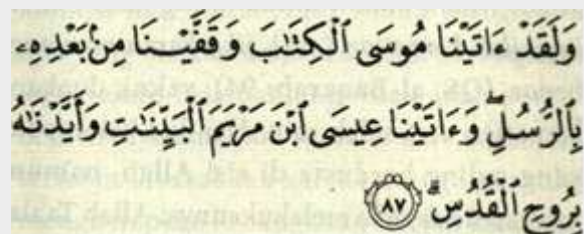 وَلَقَدْ ءَاتَيْنَا مُوسَى ٱلْكِتَٰبَ وَقَفَّيْنَا مِنۢ بَعْدِهِۦ
بِٱلرُّسُلِ ۖ وَءَاتَيْنَا عِيسَى ٱبْنَ مَرْيَمَ ٱلْبَيِّنَٰتِ وَأَيَّدْنَٰهُ
بِرُوحِ ٱلْقُدُسِ ۗ ٨٧